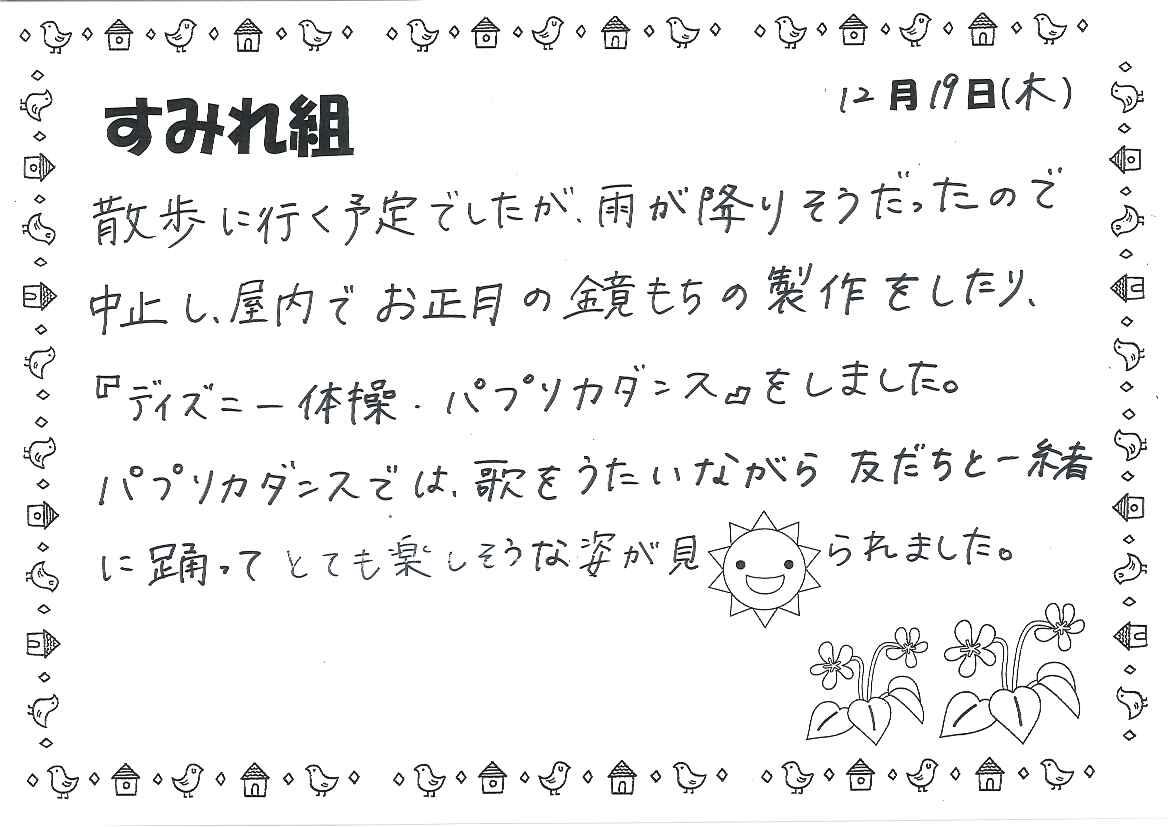 すみれ組
12月19日(木)
散歩に行く予定でしたが、雨が降りそうだったので
中止し、屋内でお正月の鏡もちの製作をしたり、
『ディズニー体操・パプリカダンス』をしました。
パプリカダンスでは、歌をうたいながら 友だちと一緒
に踊ってとても楽しそうな姿が見られました。